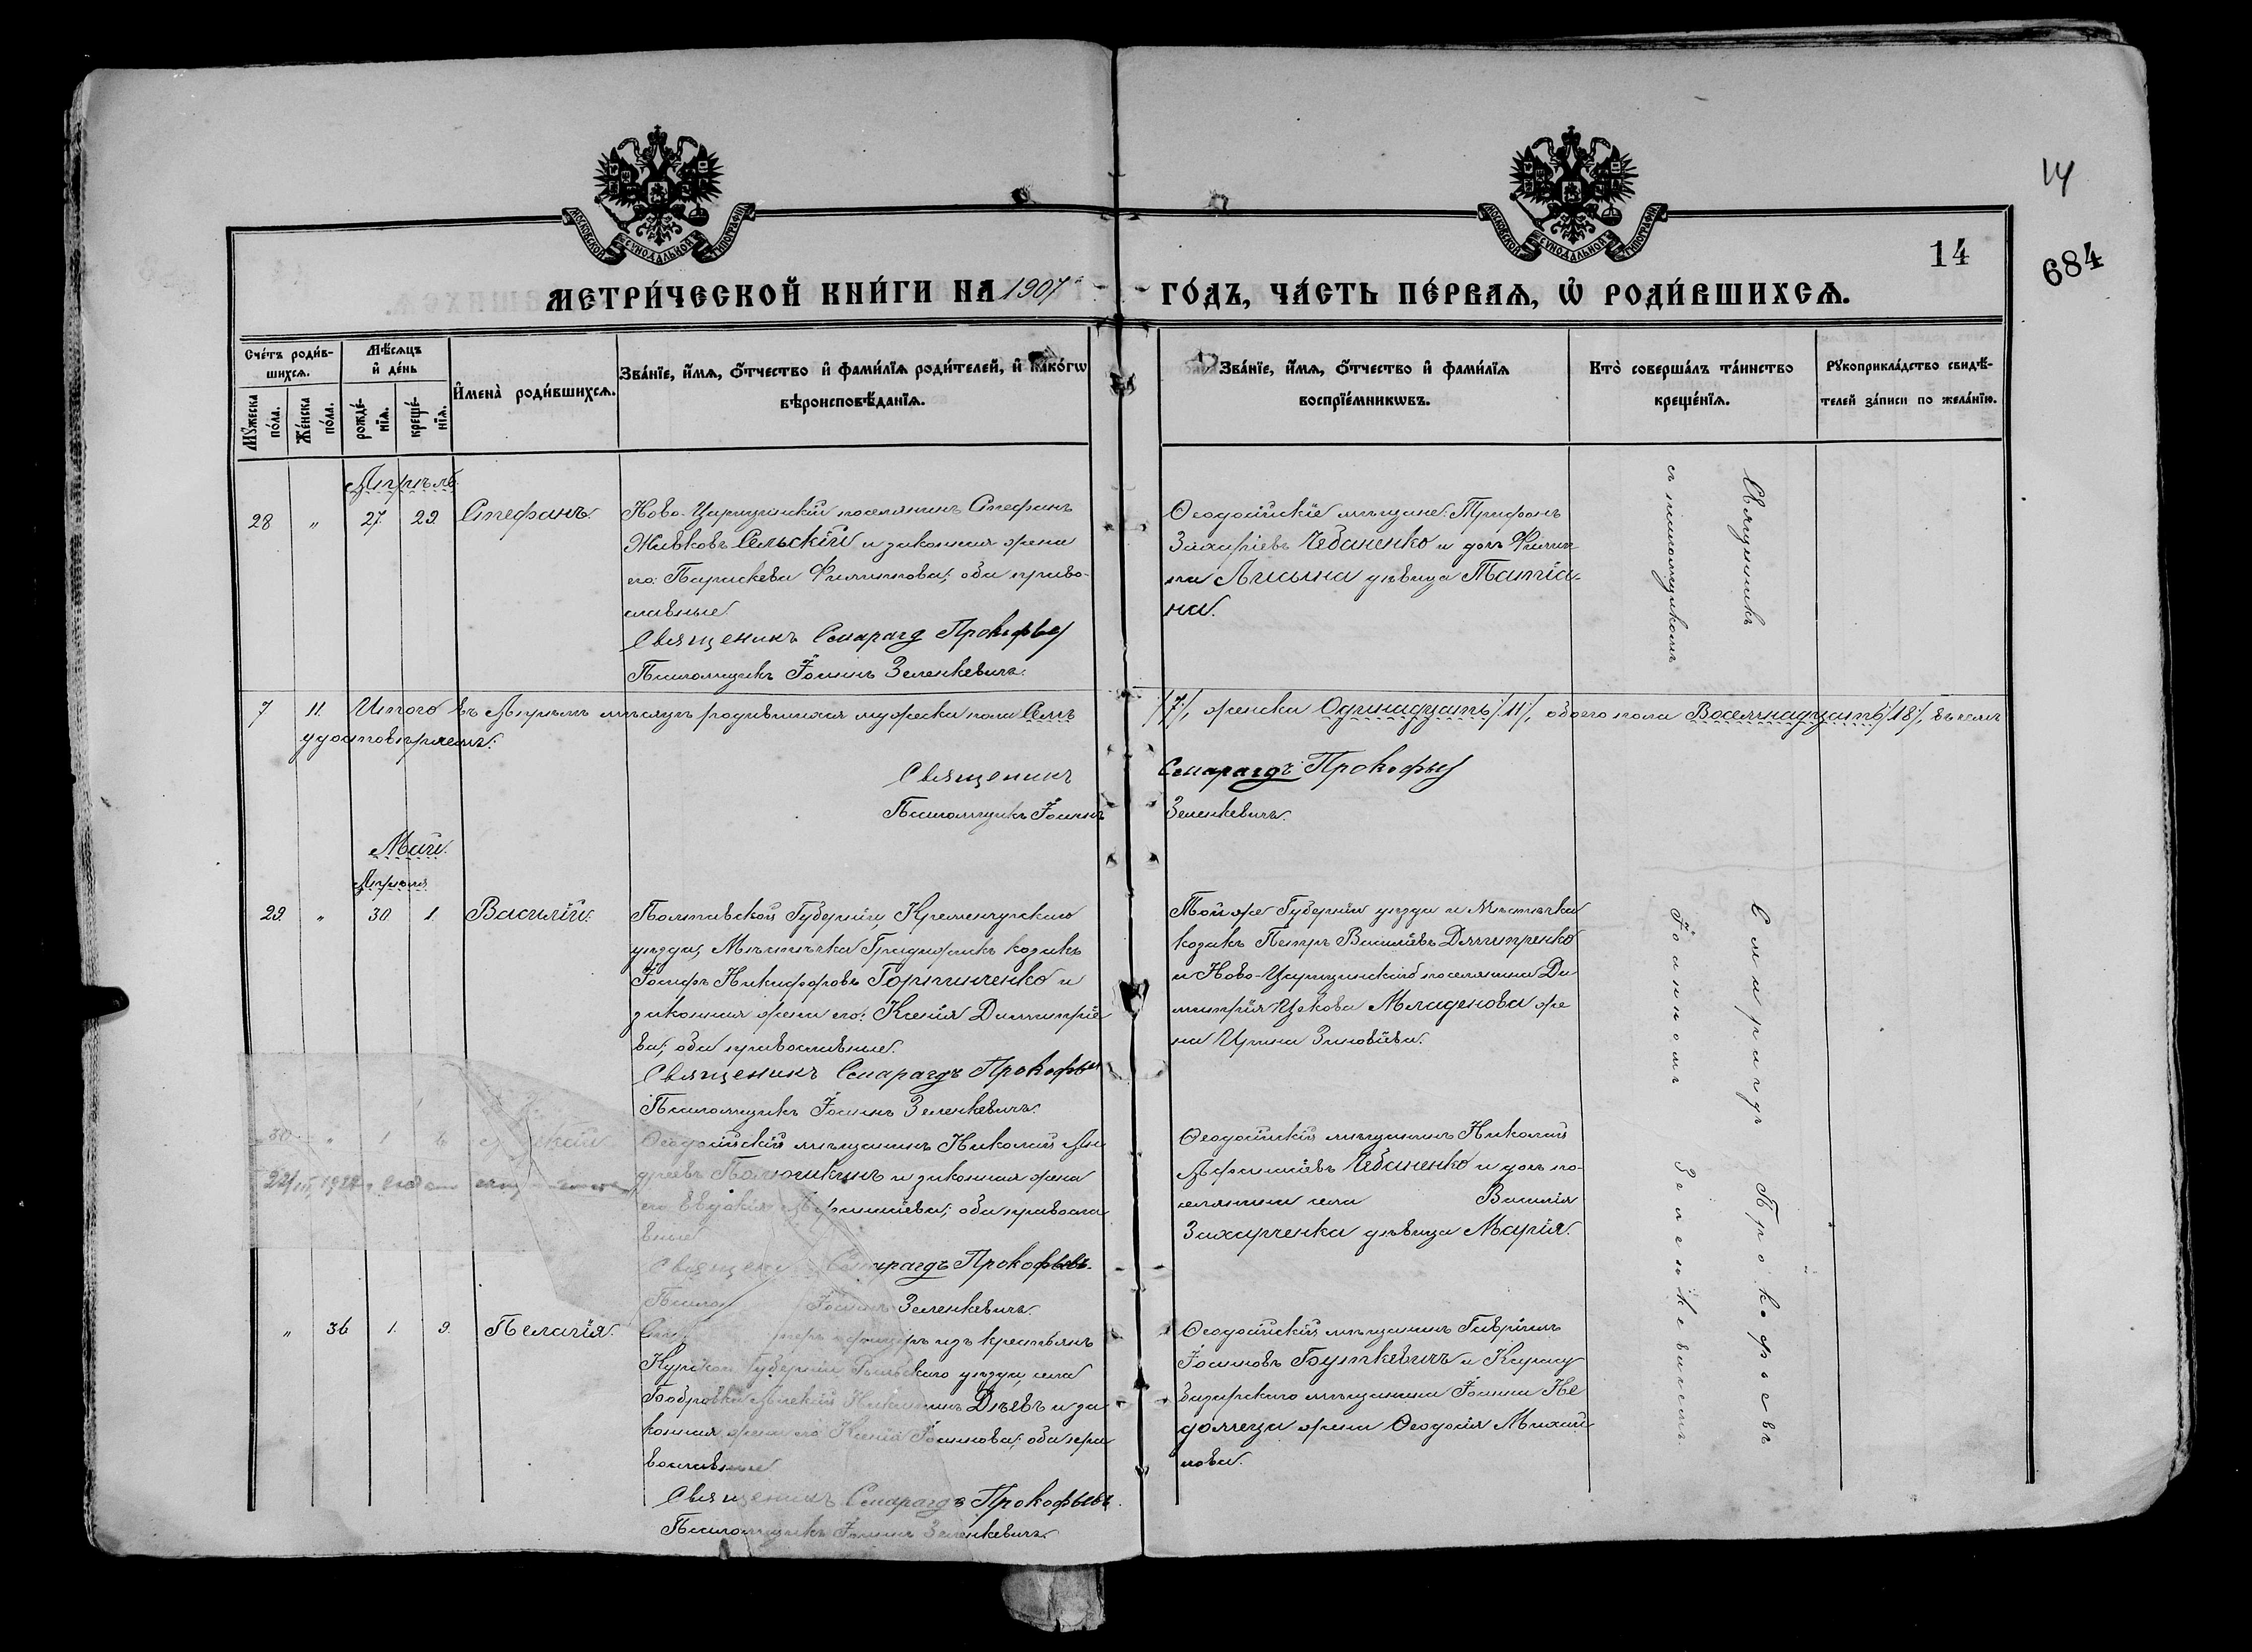 14
684
14
МОСКОВСКОЙ СѴНОДАЛЬНОЙ ТИПОГРАФІИ
МОСКОВСКОЙ СѴНОДАЛЬНОЙ ТИПОГРАФІИ
МЕТРИ́ЧЕСКОЙ КНИ́ГИ НА 1907 ГО́ДЪ, ЧА́СТЬ ПЕ́РВАѦ, Ѡ҆ РОДИ́ВШИХСѦ.
Сче́тъ роди́в-
шихсѧ.
Мꙋ́жеска по́ла.
Же́нска по́ла.
Мѣ́сѧцъ и҆ де́нь
рожде́-
нїѧ.
креще́-
нїѧ.
И҆мена̀ роди́вшихсѧ.
Зва́нїе, и҆́мѧ, ѻ҆́тчество и҆ фами́лїѧ роди́телей, и҆ како́гѡ
вѣроисповѣ́данїѧ.
Зва́нїе, и҆́мѧ, ѻ҆́тчество и҆ фами́лїѧ
воспрїе́мникѡвъ.
Кто̀ соверша́лъ та́инство
креще́нїѧ.
Рꙋкоприкла́дство свидѣ́-
телей за́писи по жела́нїю.
Апрѣль.
28 " 27. 29. Стефанъ.
Ново-Царицинскій поселянинъ Стефанъ
Живковъ Сельскій и законная жена
его: Параскева Филиппова; оба право-
славные
Священикъ Смарагд Прокофьев
Псаломщикъ Іоаннъ Зеленкевичъ.
Ѳеодосійскіе мѣщане: Трифонъ
Захаріевъ Чебаненко и дочь Филип-
па Лисина дѣвица Татіа-
на.
Священникъ
съ псаломщикомъ
7 11. Итого въ Апрѣлѣ мѣсяцѣ родившихся мужеска пола Семь /7/, женска Одинадцать /11/, обоего пола Восемнадцать /18/, въ чемъ
удостовѣряемъ:
Священикъ Смарагдъ Прокофьев
Псаломщикъ Іоаннъ Зеленкевичъ.
Май.
Апрѣля
29. " 30. 1. Василій.
Полтавской Губерніи, Кременчугскаго
уѣзда, Мѣстечка Градижскъ козакъ
Іосифъ Никифоровъ Горпинченко и
законная жена его: Ксенія Димитріе-
ва; оба православные.
Священикъ Смарагдъ Прокофьев
Псаломщикъ Іоаннъ Зеленкевичъ.
Той же Губерніи уѣзда и Мѣстечка
козакъ Петръ Василіевъ Дмитренко
и Ново-Царицинскаго поселянина Ди-
митрія Цекова Младенова же-
на Ирина Зиновіева.
Смарагдъ Прокофьевъ
Іоанномъ Зеленкевичемъ.
30. " 1 6
22/III 1922 г.
Ѳеодосійскій мѣщанинъ Николай Ан-
дреевъ Полюшкинъ и законная жена
его Евдокія Афанасіева; оба правосла-
вные
Священи Смарагдъ Прокофьевъ.
Псалом Іоаннъ Зеленкевичъ.
Ѳеодосійскій мѣщанинъ Николай
Афанасіевъ Чебаненко и дочь по-
селянина села Василія
Захарченка дѣвица Марія.
" 36 1. 9. Пелагія.
офицеръ изъ крестьянъ
Курской Губерніи Рыльскаго уѣзда, села
Бобровки Алексій Дѣевъ и за-
конная жена его Ксенія Іоаннова; оба пра-
вославные.
Священикъ Смарагдъ Прокофьевъ.
Псаломщикъ Іоаннъ Зеленкевичъ.
Ѳеодосійскій мѣщанинъ Гавріилъ
Іоанновъ Буткевичъ и Карасу-
базарскаго мѣщанина Іоанна Не-
жена Ѳеодосія Михай-
лова.